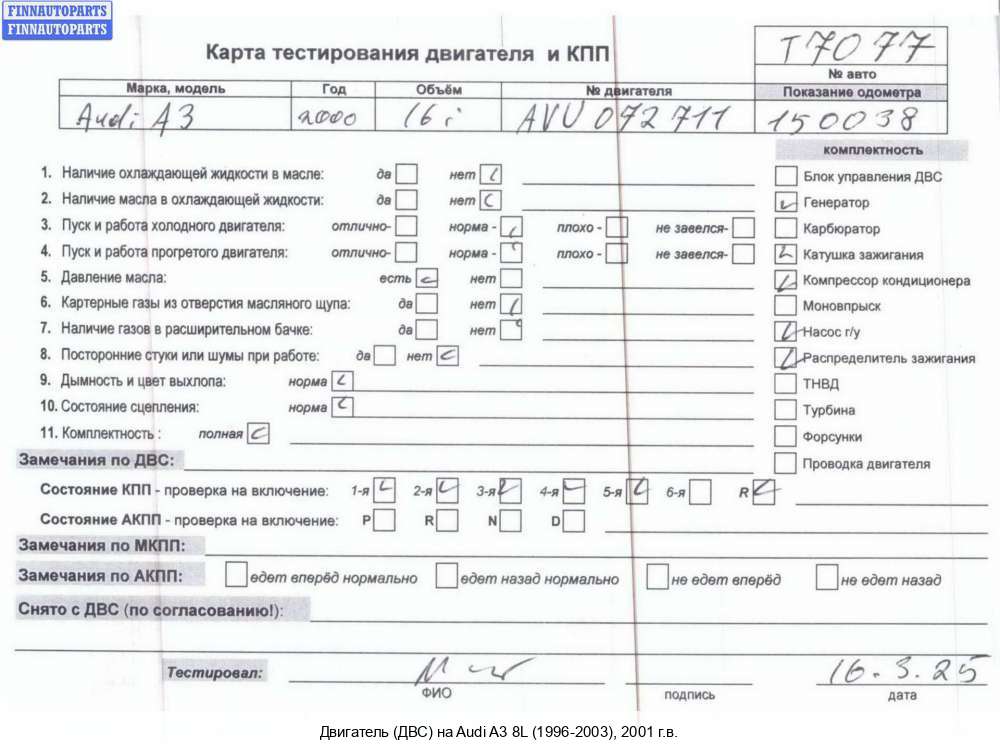 FINNAUTOPARTS
FINNAUTOPARTS
Карта тестирования двигателя и КПП
T7077
№ авто
Марка, модель Год Объём № двигателя Показание одометра
Audi A3 2000 16 i AVU 072711 150038
комплектность
1. Наличие охлаждающей жидкости в масле: да нет
Блок управления ДВС
2. Наличие масла в охлаждающей жидкости: да нет
Генератор
3. Пуск и работа холодного двигателя: отлично- норма - плохо - не завелся-
Карбюратор
4. Пуск и работа прогретого двигателя: отлично- норма - плохо - не завелся-
Катушка зажигания
5. Давление масла: есть нет
Компрессор кондиционера
6. Картерные газы из отверстия масляного щупа: да нет
Моновпрыск
7. Наличие газов в расширительном бачке: да нет
Насос г/у
8. Посторонние стуки или шумы при работе: да нет
Распределитель зажигания
9. Дымность и цвет выхлопа: норма
ТНВД
10. Состояние сцепления: норма
Турбина
11. Комплектность : полная
Форсунки
Замечания по ДВС:
Проводка двигателя
Состояние КПП - проверка на включение: 1-я 2-я 3-я 4-я 5-я 6-я R
Состояние АКПП - проверка на включение: P R N D
Замечания по МКПП:
Замечания по АКПП: едет вперёд нормально едет назад нормально не едет вперёд не едет назад
Снято с ДВС (по согласованию!):
Тестировал: 16.3.25
ФИО подпись дата
Двигатель (ДВС) на Audi A3 8L (1996-2003), 2001 г.в.